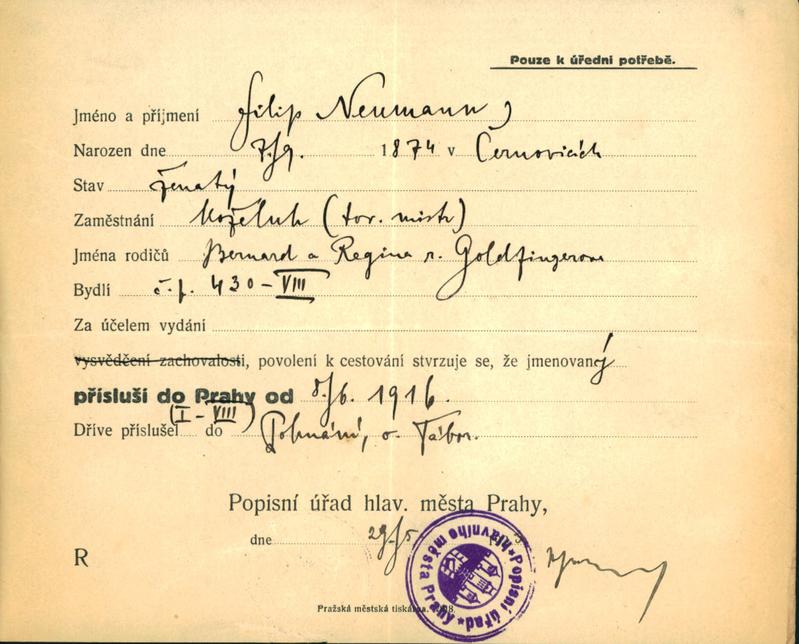 Pouze k úřední potřebě.
Jméno a příjmení Filip Neumann
Narozen dne 7/9. 1874 v Černovicích
Stav ženatý
Zaměstnání koželuh (tov. mistr)
Jména rodičů Bernard a Regina r. Goldfingerova
Bydlí č.p. 430-VIII
Za účelem vydání
vysvědčení zachovalosti, povolení k cestování stvrzuje se, že jmenovaný
přísluší do Prahy od 8/6. 1916.
(I-VIII)
Dříve příslušel do o. Tábor.
Popisní úřad hlav. města Prahy,
dne 29/5
Popisní úřad hlavního města Prahy
R
Pražská městská tiskárna.